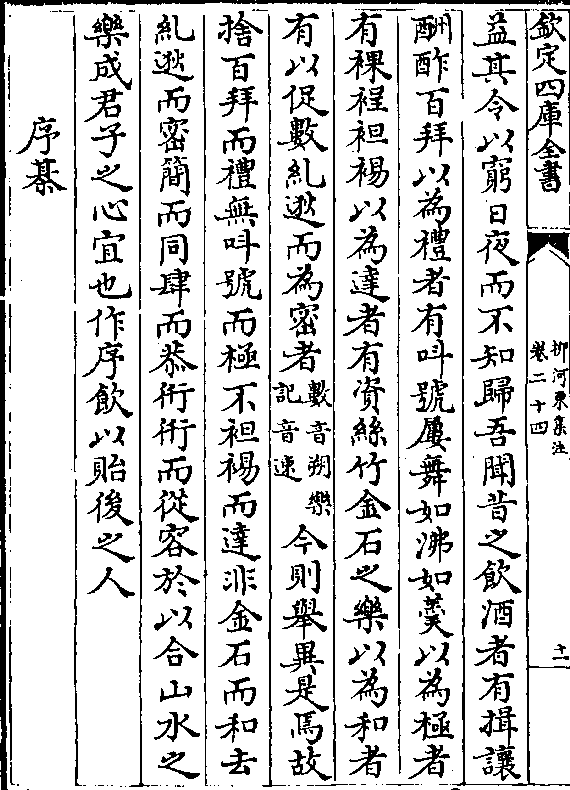 欽定四庫全書
柳河東集注
卷二十四
十一
益其令以窮日夜而不知歸吾聞昔之飲酒者有揖讓
酬酢百拜以為禮者有呌號屢舞如沸如羮以為極者
有裸裎袒裼以為達者有資絲竹金石之樂以為和者
有以促數糺逖而為密者數音朔樂記音速今則舉異是焉故
捨百拜而禮無呌號而極不袒裼而達非金石而和去
糺逖而密簡而同肆而恭衎衎而從容於以合山水之
樂成君子之心宜也作序飲以貽後之人
序棊